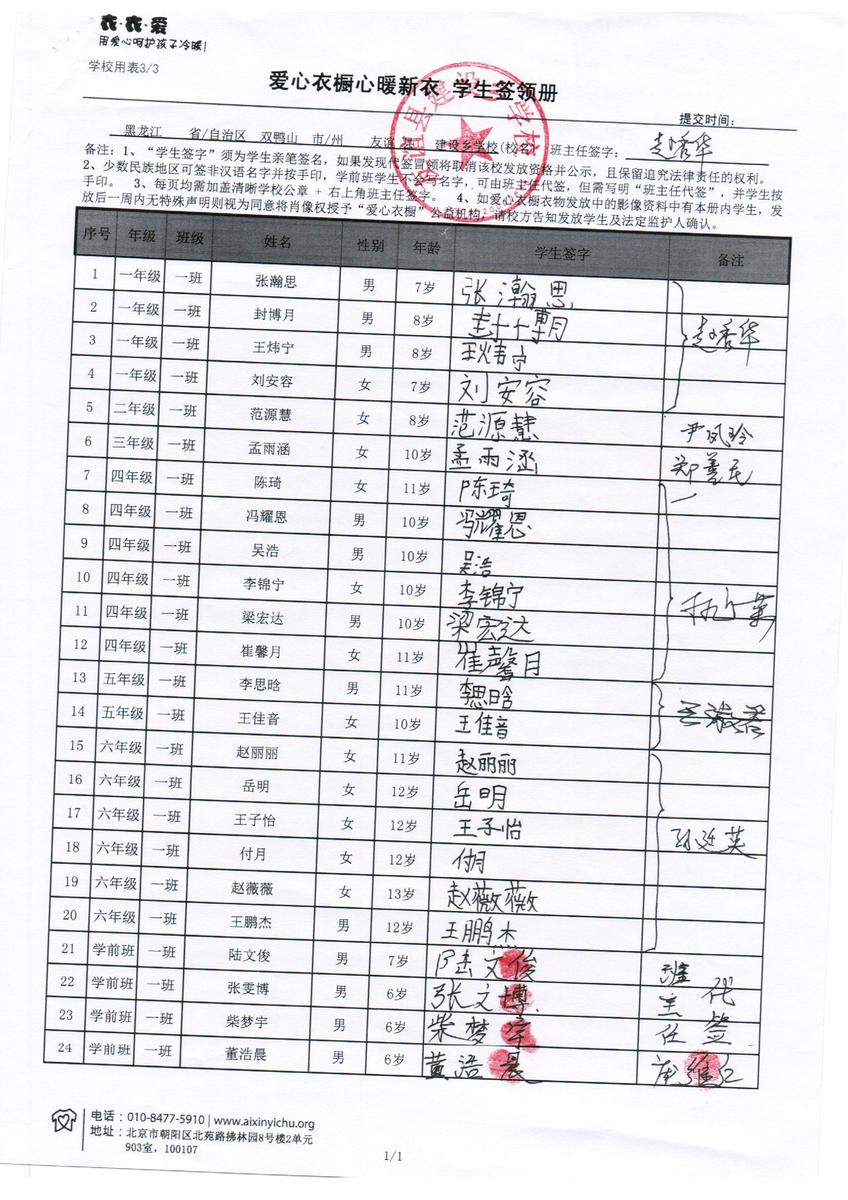 衣·衣·爱
用爱心呵护孩子冷暖!
学校用表3/3
爱心衣橱心暖新衣 学生签领册
提交时间:
黑龙江 省/自治区 双鸭山 市/州 友谊 县 建设乡学校(校名) 班主任签字: 赵秀华
备注: 1、“学生签字”须为学生亲笔签名,如果发现代签冒领将取消该校发放资格并公示,且保留追究法律责任的权利。
2、少数民族地区可签非汉语名字并按手印,学前班学生不会写名字,可由班主任代签,但需写明“班主任代签”,并学生按
手印。 3、每页均需加盖清晰学校公章 + 右上角班主任签字。 4、如爱心衣橱衣物发放中的影像资料中有本册内学生,发
放后一周内无特殊声明则视为同意将肖像权授予“爱心衣橱”公益机构,请校方告知发放学生及法定监护人确认。
序号 年级 班级 姓名 性别 年龄 学生签字 备注
1 一年级 一班 张瀚思 男 7岁 张瀚思
2 一年级 一班 封博月 男 8岁 封博月 赵秀华
3 一年级 一班 王炜宁 男 8岁 王炜宁
4 一年级 一班 刘安容 女 7岁 刘安容
5 二年级 一班 范源慧 女 8岁 范源慧 尹凤玲
6 三年级 一班 孟雨涵 女 10岁 孟雨涵 郑善民
7 四年级 一班 陈琦 女 11岁 陈琦
8 四年级 一班 冯耀恩 男 10岁 冯耀恩
9 四年级 一班 吴浩 男 10岁 吴浩
10 四年级 一班 李锦宁 女 10岁 李锦宁
11 四年级 一班 梁宏达 男 10岁 梁宏达
12 四年级 一班 崔馨月 女 11岁 崔馨月
13 五年级 一班 李思晗 男 11岁 李思晗
14 五年级 一班 王佳音 女 10岁 王佳音
15 六年级 一班 赵丽丽 女 11岁 赵丽丽
16 六年级 一班 岳明 女 12岁 岳明
17 六年级 一班 王子怡 女 12岁 王子怡
18 六年级 一班 付月 女 12岁 付月
19 六年级 一班 赵薇薇 女 13岁 赵薇薇
20 六年级 一班 王鹏杰 男 12岁 王鹏杰
21 学前班 一班 陆文俊 男 7岁 陆文俊 班
22 学前班 一班 张雯博 男 6岁 张文博 主 代
23 学前班 一班 柴梦宇 男 6岁 柴梦宇 任 签
24 学前班 一班 董浩晨 男 6岁 黄浩晨
电话:010-8477-5910 | www.aixinyichu.org
地址:北京市朝阳区北苑路拂林园8号楼2单元
903室,100107
1/1